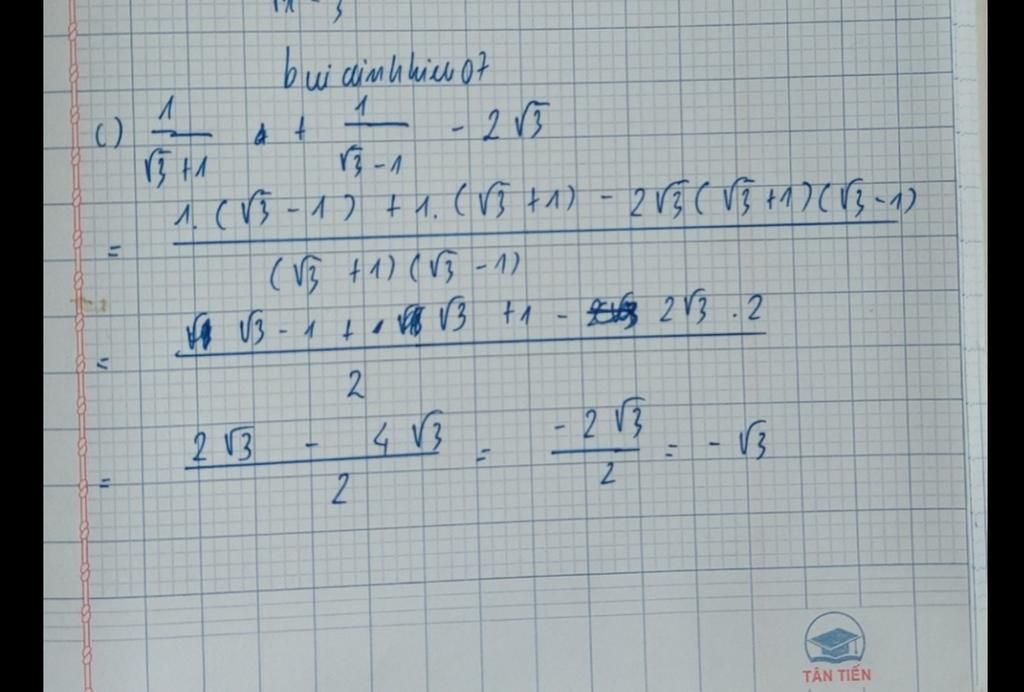 buidinhhieu07
c) 1/(√3+1) + 1/(√3-1) - 2√3
= (1.(√3-1) + 1.(√3+1) - 2√3(√3+1)(√3-1))/((√3+1)(√3-1))
= (√3-1 + √3+1 - 2√3.2)/2
= (2√3 - 4√3)/2 = (-2√3)/2 = -√3
TÂN TIẾN